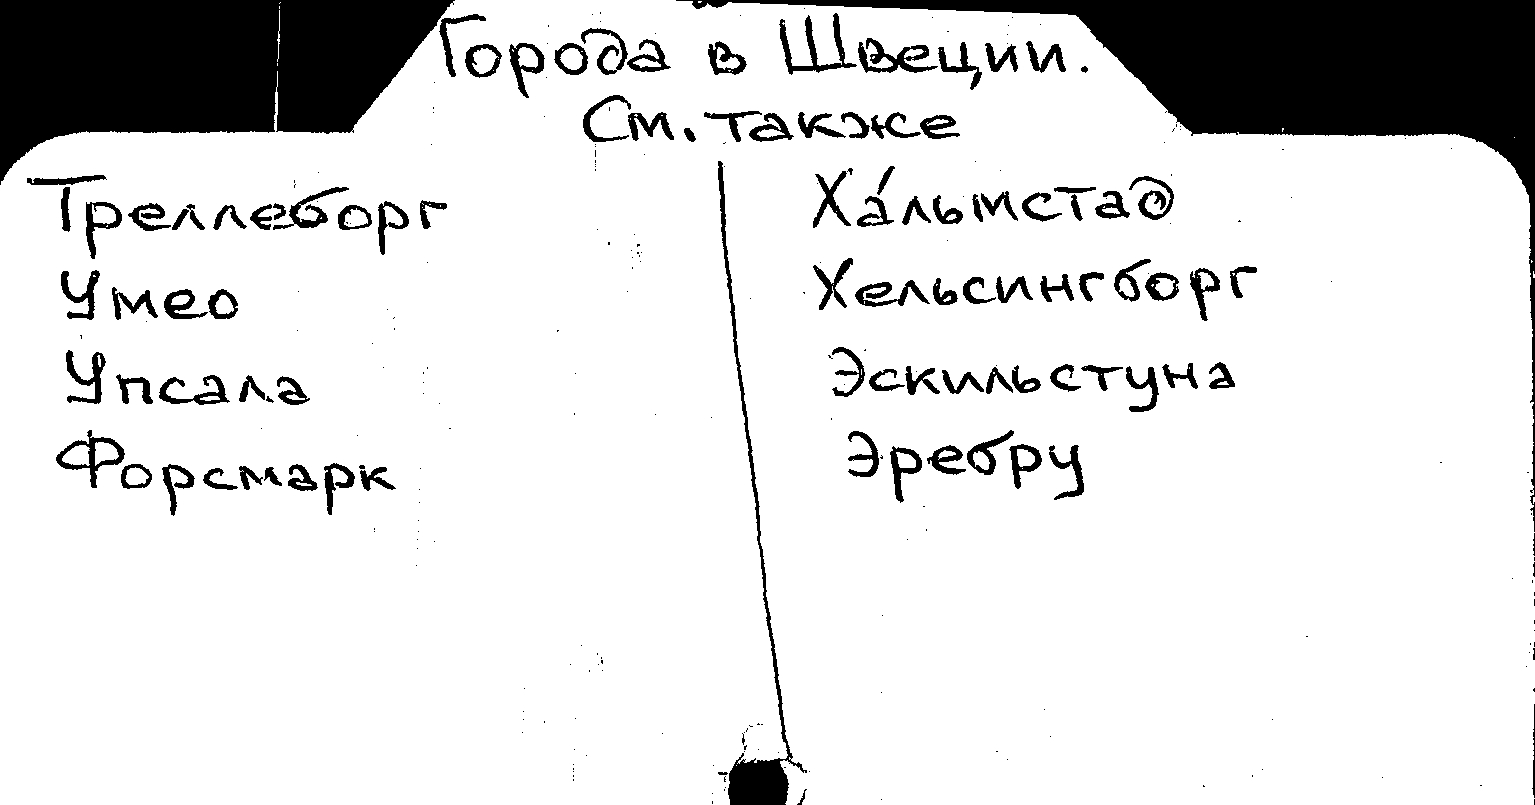 Города в Швеции.
См. также
Треллеборг
Умео
Упсала
Форсмарк
Ха́льмстад
Хельсингборг
Эскильстуна
Эребру